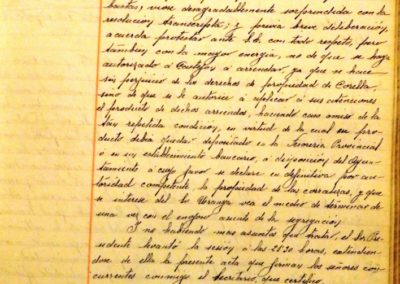 bastas, viose desagradablemente sorprendida con la
resolución transcripta; y previa breve deliberación,
acuerda protestar ante Vd. con todo respeto, pero
tambien con la mayor energia, no de que se haya
autorizado a Castejón a arrendar, ya que se hace
sin perjuicio de los derechos de propiedad de Corella,
sino de que se le autorice á aplicar á sus atenciones
el producto de dichos arriendos, haciendo caso omiso de la
tan repetida condicion, en virtud de la cual su pro-
ducto debia quedar depositado en la Tesoreria Provincial
ó en un establecimiento bancario, á disposición del Ayun-
tamiento á cuyo favor se declare en definitiva por au-
toridad competente la propiedad de las corralizas, y que
se interese del Sr Uranga vea el medio de terminar de
una vez con el enojoso asunto de la segregación.
Y no habiendo mas asuntos que tratar, el Sr. Pre-
sidente levantó la sesión á las 21'30 horas, extendien-
dose de ella la presente acta que firman los señores con-
currentes conmigo el Secretario, que certifico.